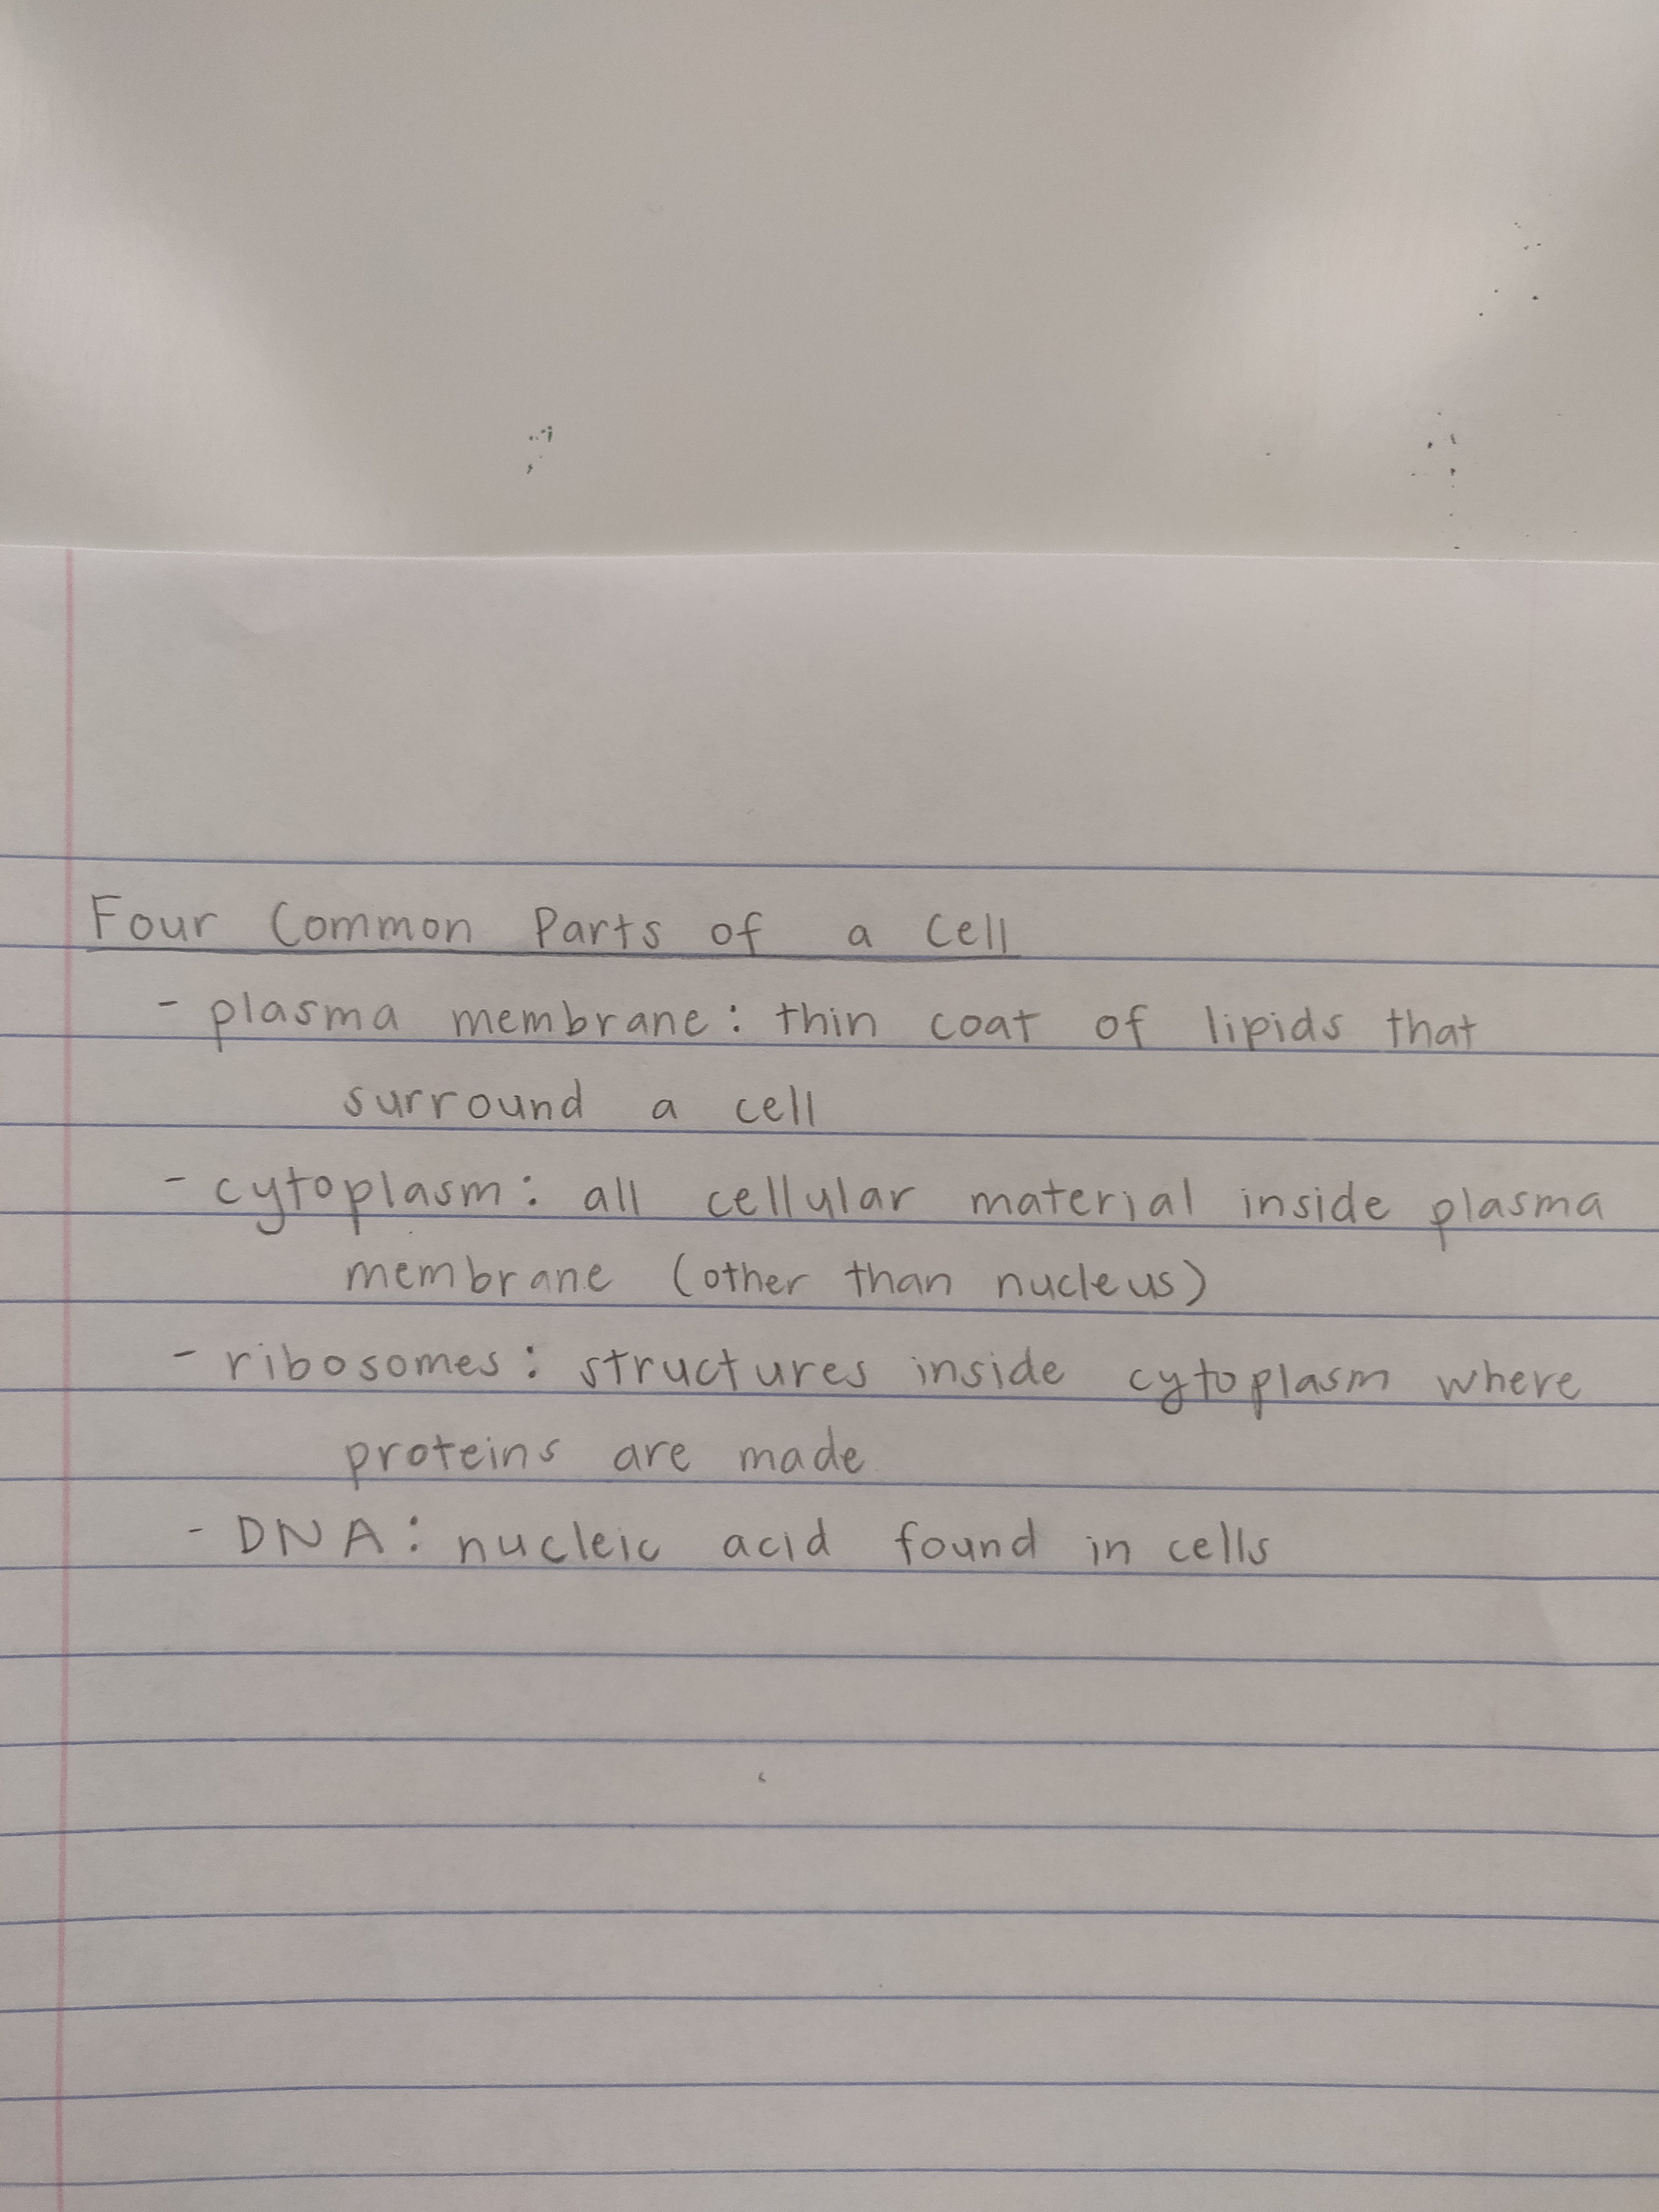 Four Common Parts of a Cell
- plasma membrane: thin coat of lipids that
surround a cell
- cytoplasm: all cellular material inside plasma
membrane (other than nucleus)
- ribosomes: structures inside cytoplasm where
proteins are made
- DNA: nucleic acid found in cells